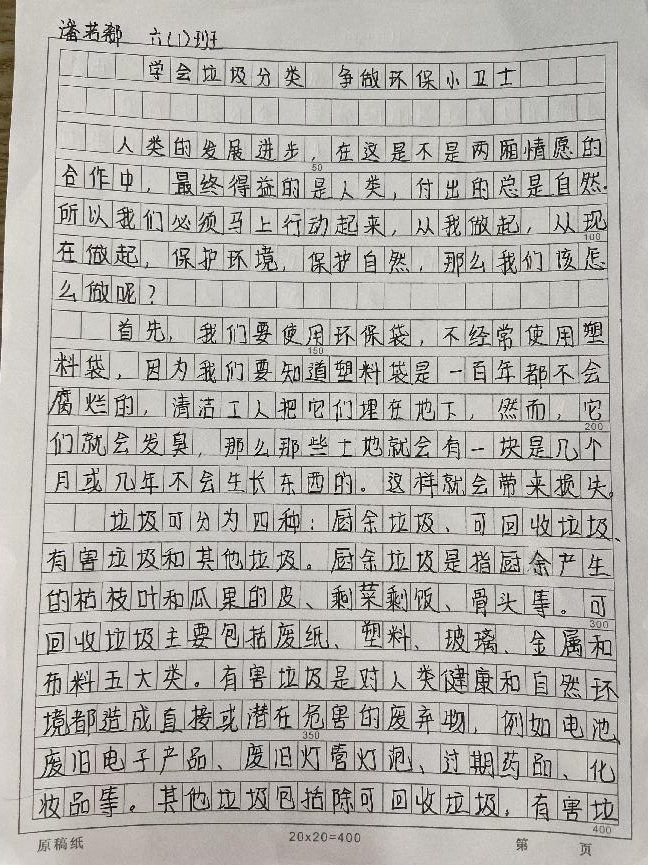 潘若郗 六(1)班
学会垃圾分类 争做环保小卫士
人类的发展进步，在这是不是两厢情愿的
合作中，最终得益的是人类，付出的总是自然.
所以我们必须马上行动起来，从我做起，从现
100
在做起，保护环境，保护自然，那么我们该怎
么做呢？
首先，我们要使用环保袋，不经常使用塑
150
料袋，因为我们要知道塑料袋是一百年都不会
腐烂的，清洁工人把它们埋在地下，然而，它
200
们就会发臭，那么那些土地就会有一块是几个
月或几年不会生长东西的。这样就会带来损失。
垃圾可分为四种：厨余垃圾、可回收垃圾、
有害垃圾和其他垃圾。厨余垃圾是指厨余产生
的枯枝叶和瓜果的皮、剩菜剩饭、骨头等。可
300
回收垃圾主要包括废纸、塑料、玻璃、金属和
布料五大类。有害垃圾是对人类健康和自然环
境都造成直接或潜在危害的废弃物，例如电池、
350
废旧电子产品、废旧灯管灯泡、过期药品、化
妆品等。其他垃圾包括除可回收垃圾，有害垃
400
原稿纸 20x20=400 第 页
50